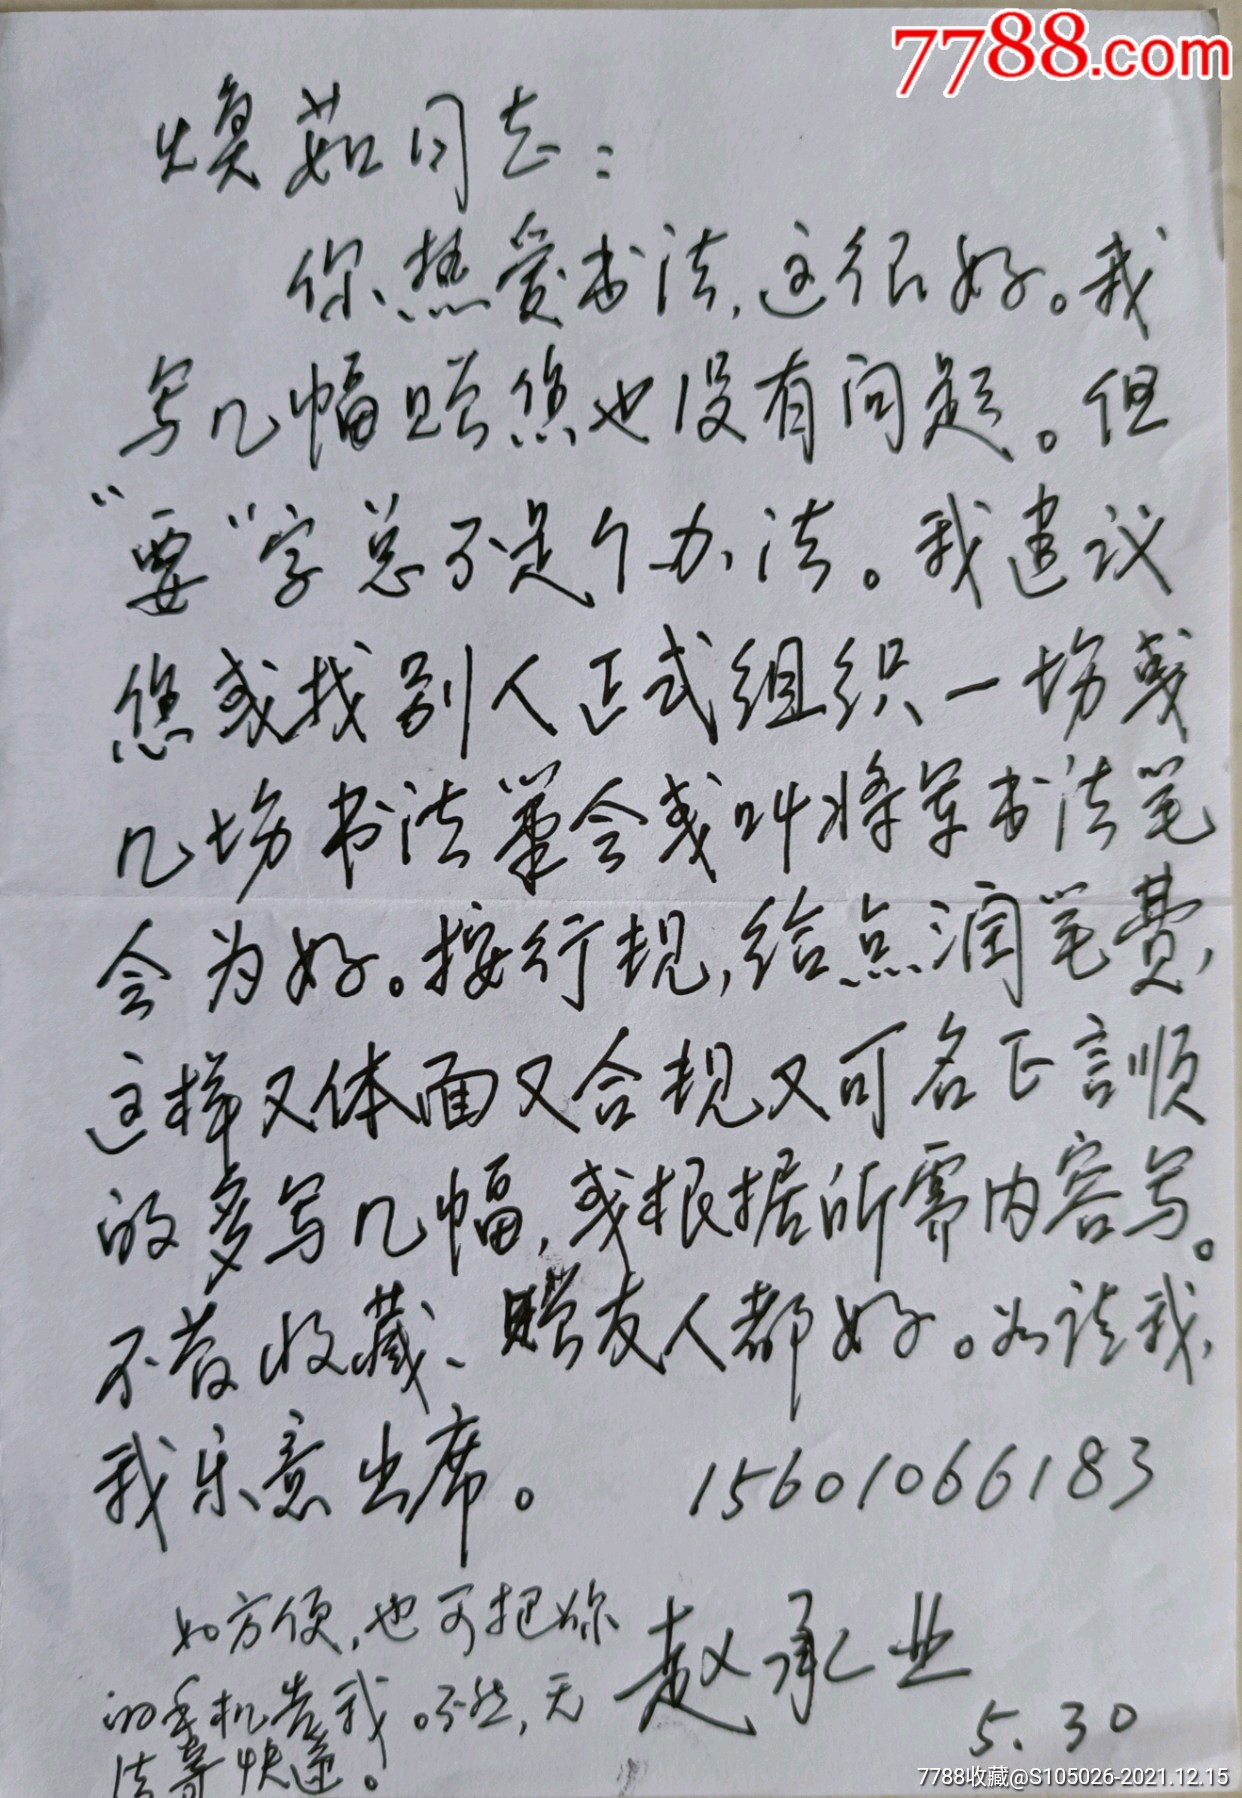 7788.com
焕茹同志：
你热爱书法，这很好。我
写几幅赠您也没有问题。但
“要”字总不是个办法。我建议
您或找别人正式组织一场或
几场书法笔会或叫将军书法笔
会为好。按行规，给点润笔费，
这样又体面又合规又可名正言顺
的多写几幅，或根据所需内容写。
不管收藏、赠友人都好。如请我，
我乐意出席。 15601066183
如方便，也可把你
的手机告我。不然，无
法寄快递。
赵承业
5.30
7788收藏@S105026-2021.12.15